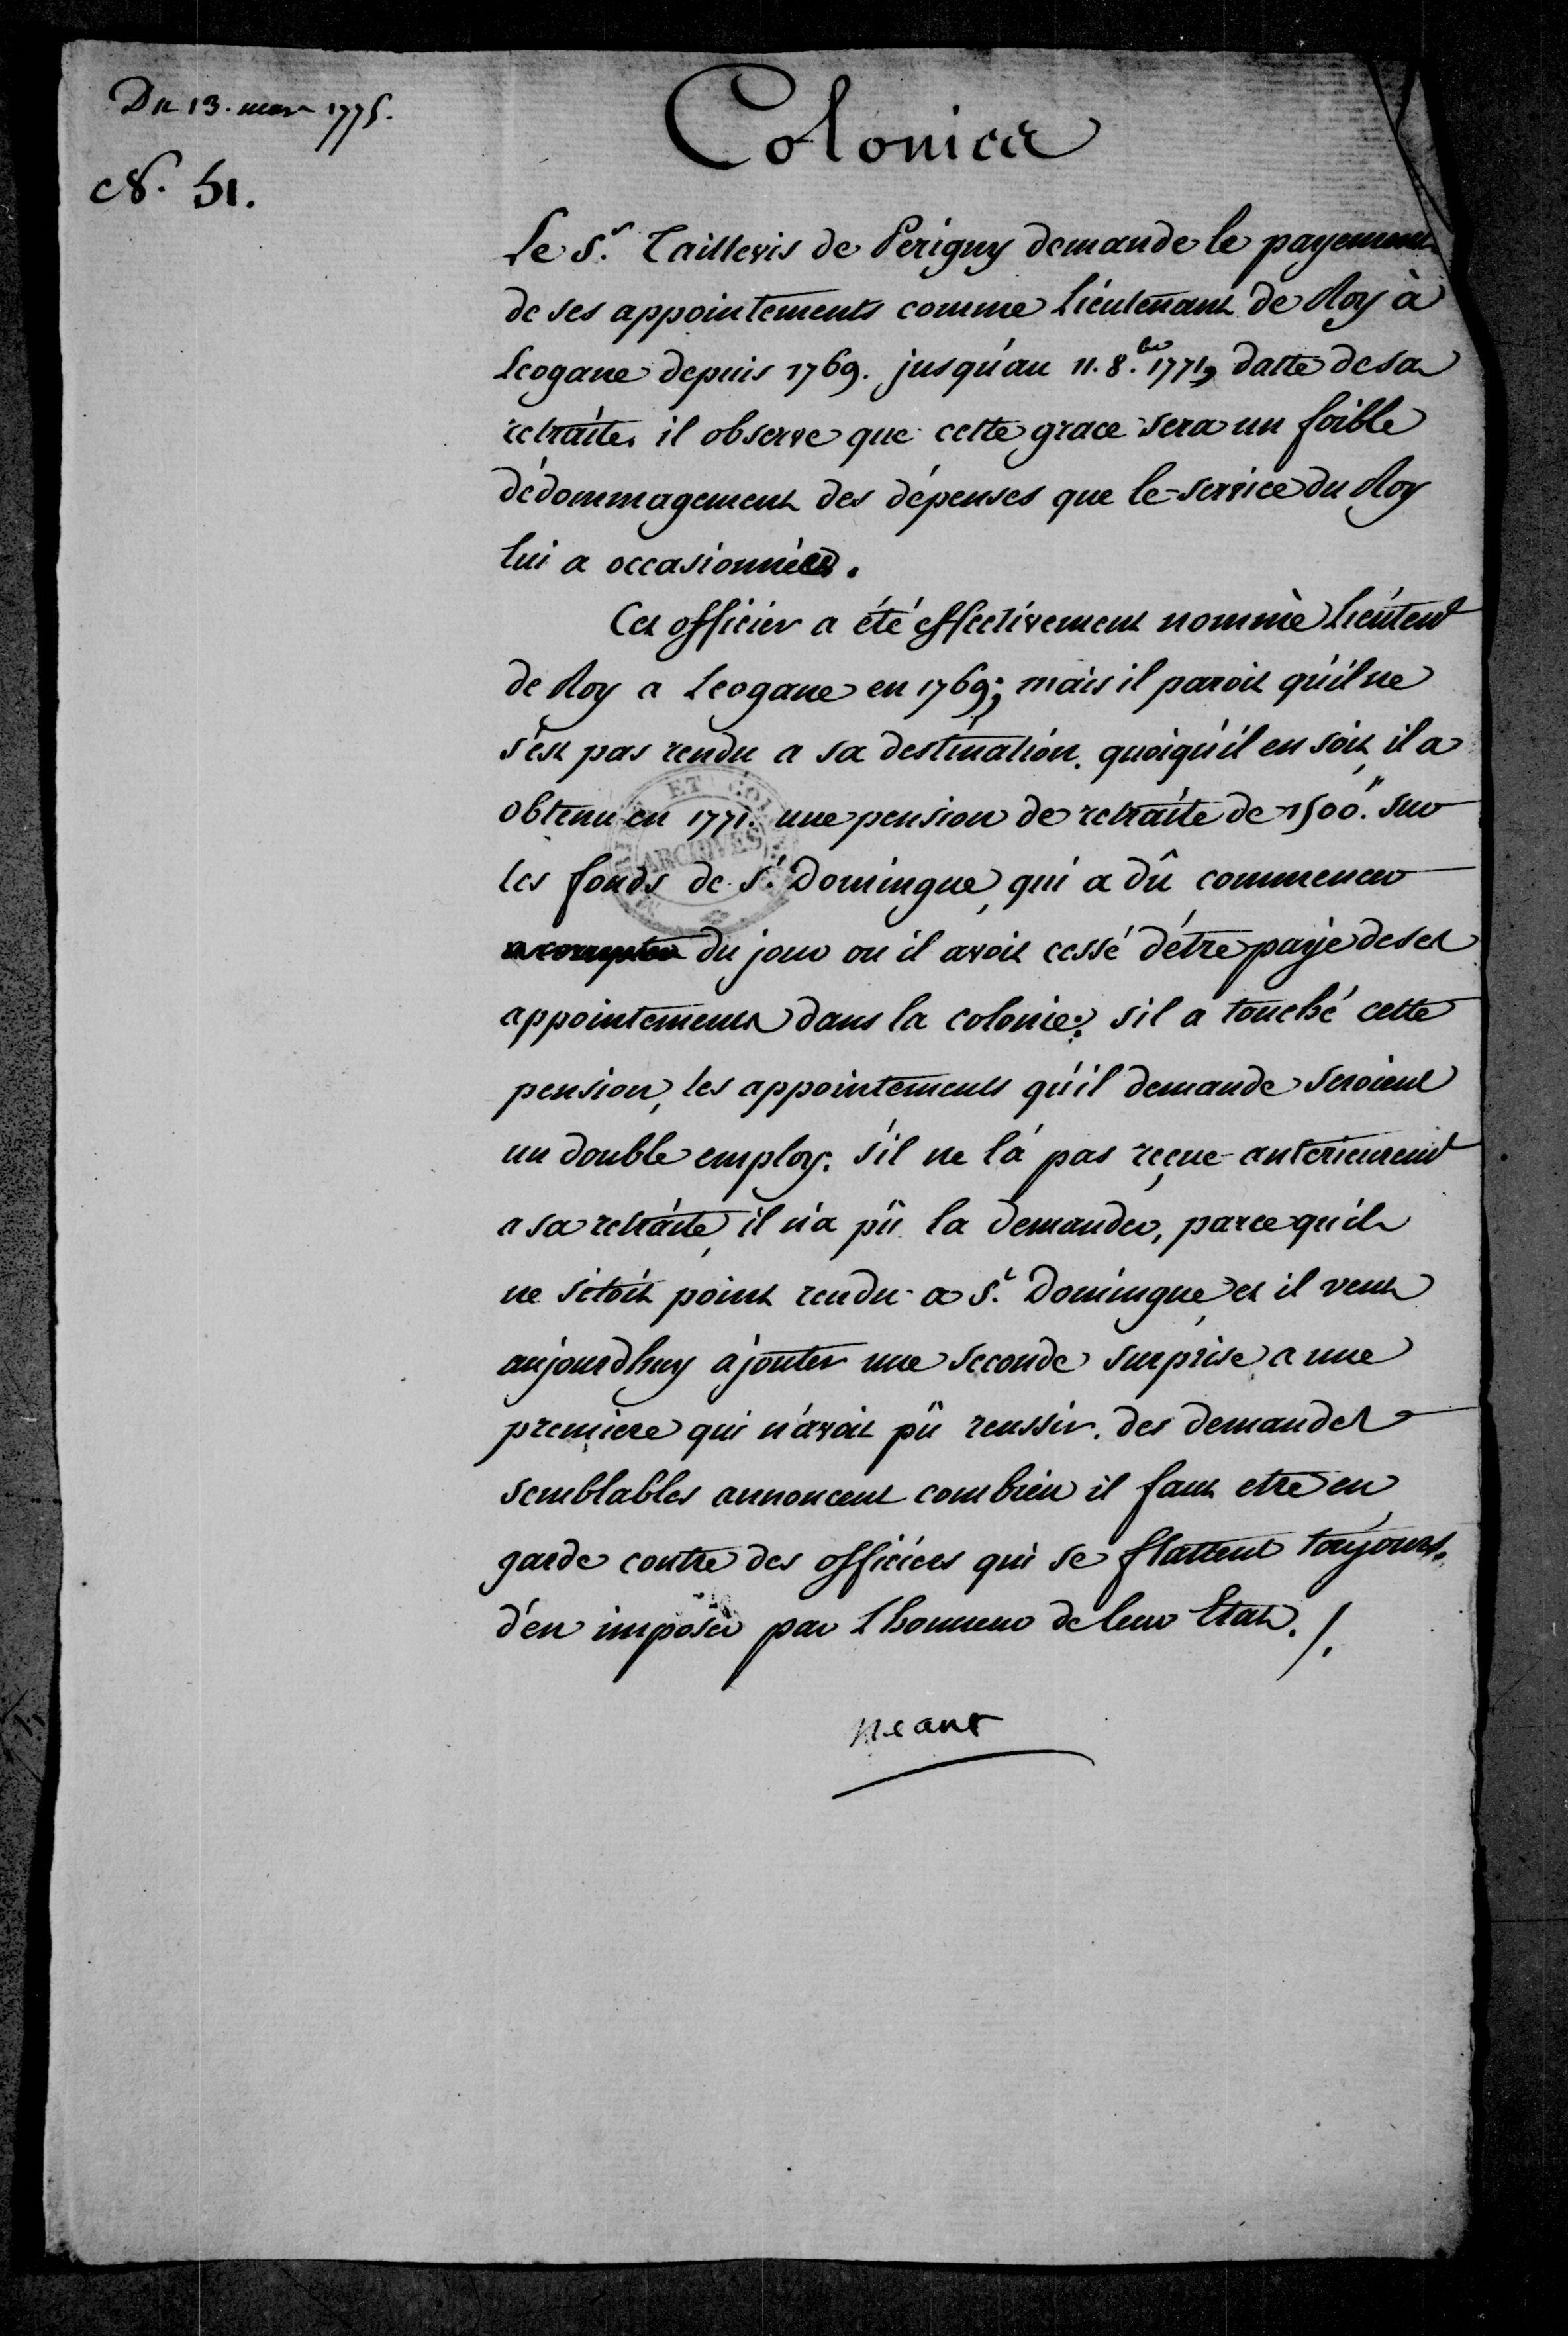 Du 13. mars 1775.
N. 51.
Colonies
Le S.r Taillevis de Perigny demande le payement
de ses appointements comme Lieutenant de Roy à
Leogane depuis 1769. jusqu'au 11. 8.bre 1771, datte de sa
retraite. il observe que cette grace sera un foible
dédommagement des dépenses que le service du Roy
lui a occasionnées.
Cet officier a été effectivement nommé Lieutent
de Roy a Leogane en 1769; mais il paroit qu'il ne
s'est pas rendu a sa destination. quoiqu'il en soit, il a
obtenu en 1771. une pension de retraite de 1500.tt sur
les fonds de S.t Domingue, qui a dû commencer
a compter du jour ou il avoit cessé d'être payé de ses
appointements dans la colonie; s'il a touché cette
pension, les appointements qu'il demande seroient
un double employ. s'il ne l'a pas reçue antérieurement
a sa retraite, il n'a pû la demander, parce qu'il
ne s'étoit point rendu a S.t Domingue, et il veut
aujourdhuy ajouter une seconde surprise a une
premiere qui n'avoit pû reussir. des demandes
semblables annoncent combien il faut etre en
garde contre des officiers qui se flattent toujours
d'en imposer par l'honneur de leur Etat. /.
neant
ET COL
ARCHIVES